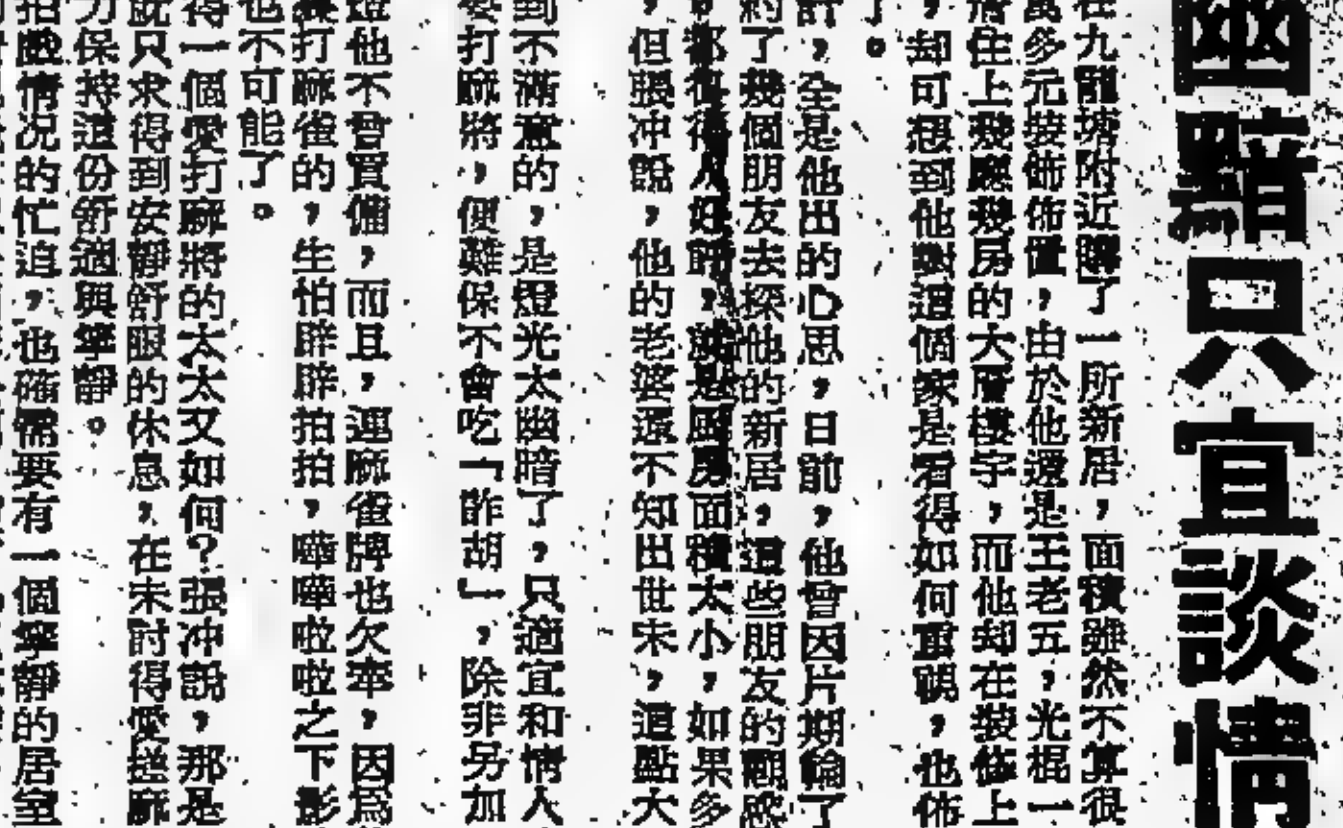 幽黯只宜談情
在九龍塘附近購了一所新居，面積雖然不算很
萬多元裝飾佈置，由於他還是王老五，光棍一
居住上幾廳幾房的大廈樓宇，而他却在裝修上
，却可想到他對這個家是看得如何重視，也佈
了。
計，全是他出的心思，日前，他曾因片期輪了
約了幾個朋友去探他的新居，這些朋友的觀感
，都覺得人好評，說是厨房面積太小，如果多
，但張冲說，他的老婆還不知出世未，這點大
到不滿意的，是燈光太幽暗了，只適宜和情人
要打麻將，便難保不會吃「詐胡」，除非另加
燈他不曾買備，而且，連麻雀牌也欠奉，因爲
打麻雀的，生怕辟辟拍拍，嘩嘩啦啦之下影
也不可能了。
得一個愛打麻將的太太又如何？張冲說，那是
就只求得到安靜舒服的休息，在未討得愛搓麻
力保持這份舒適與寧靜。
拍戲情况的忙迫，也確需要有一個寧靜的居室